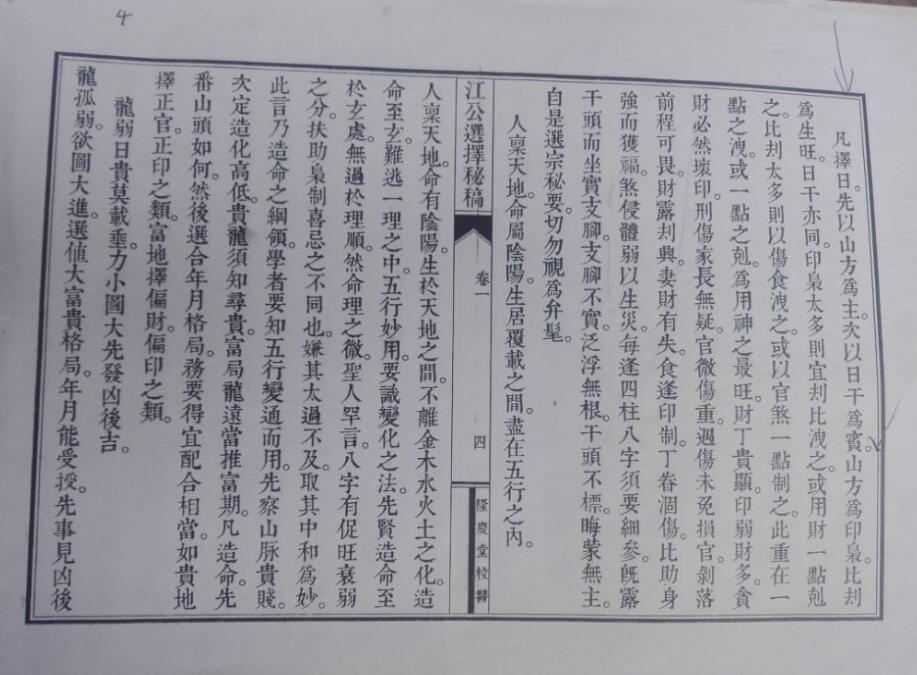 4
凡擇日。先以山方爲主。次以日干爲賓。山方爲印梟比刦
爲生旺。日干亦同。印梟太多則宜刦比洩之。或用財一點剋
之。比刦太多則以傷食洩之。或以官煞一點制之。此重在一
點之洩。或一點之剋。爲用神之最旺。財丁貴顯。印弱財多。貪
財必然壞印。刑傷家長無疑。官微傷重。遇傷未免損官。剝落
前程可畏。財露刦興。妻財有失。食逢印制。丁眷涸傷。比助身
強而獲福。煞侵體弱以生災。每逢四柱八字須要細參。旣露
干頭而坐實支腳。支腳不實。泛浮無根。干頭不標。晦蒙無主。
自是選宗秘要。切勿視爲弁髦。
人稟天地。命屬陰陽。生居覆載之間。盡在五行之內。
江公選擇秘稿
卷一
四
隆慶堂校醫
人稟天地。命有陰陽。生於天地之間。不離金木水火土之化。造
命至玄。難逃一理之中。五行妙用。要識變化之法。先賢造命至
於玄處。無過於理順。然命理之微。聖人罕言。八字有促旺衰弱
之分。扶助梟制喜忌之不同也。嫌其太過不及。取其中和爲妙。
此言乃造命之綱領。學者要知五行變通而用。先察山脉貴賤。
次定造化高低。貴龍須知尋貴。富局龍遠當推富期。凡造命。先
番山頭如何。然後選合年月格局。務要得宜配合相當。如貴地
擇正官。正印之類。富地擇偏財。偏印之類。
龍弱日貴莫載垂。力小圖大先發凶後吉。
龍孤弱。欲圖大進。選値大富貴格局。年月能受授。先事見凶後